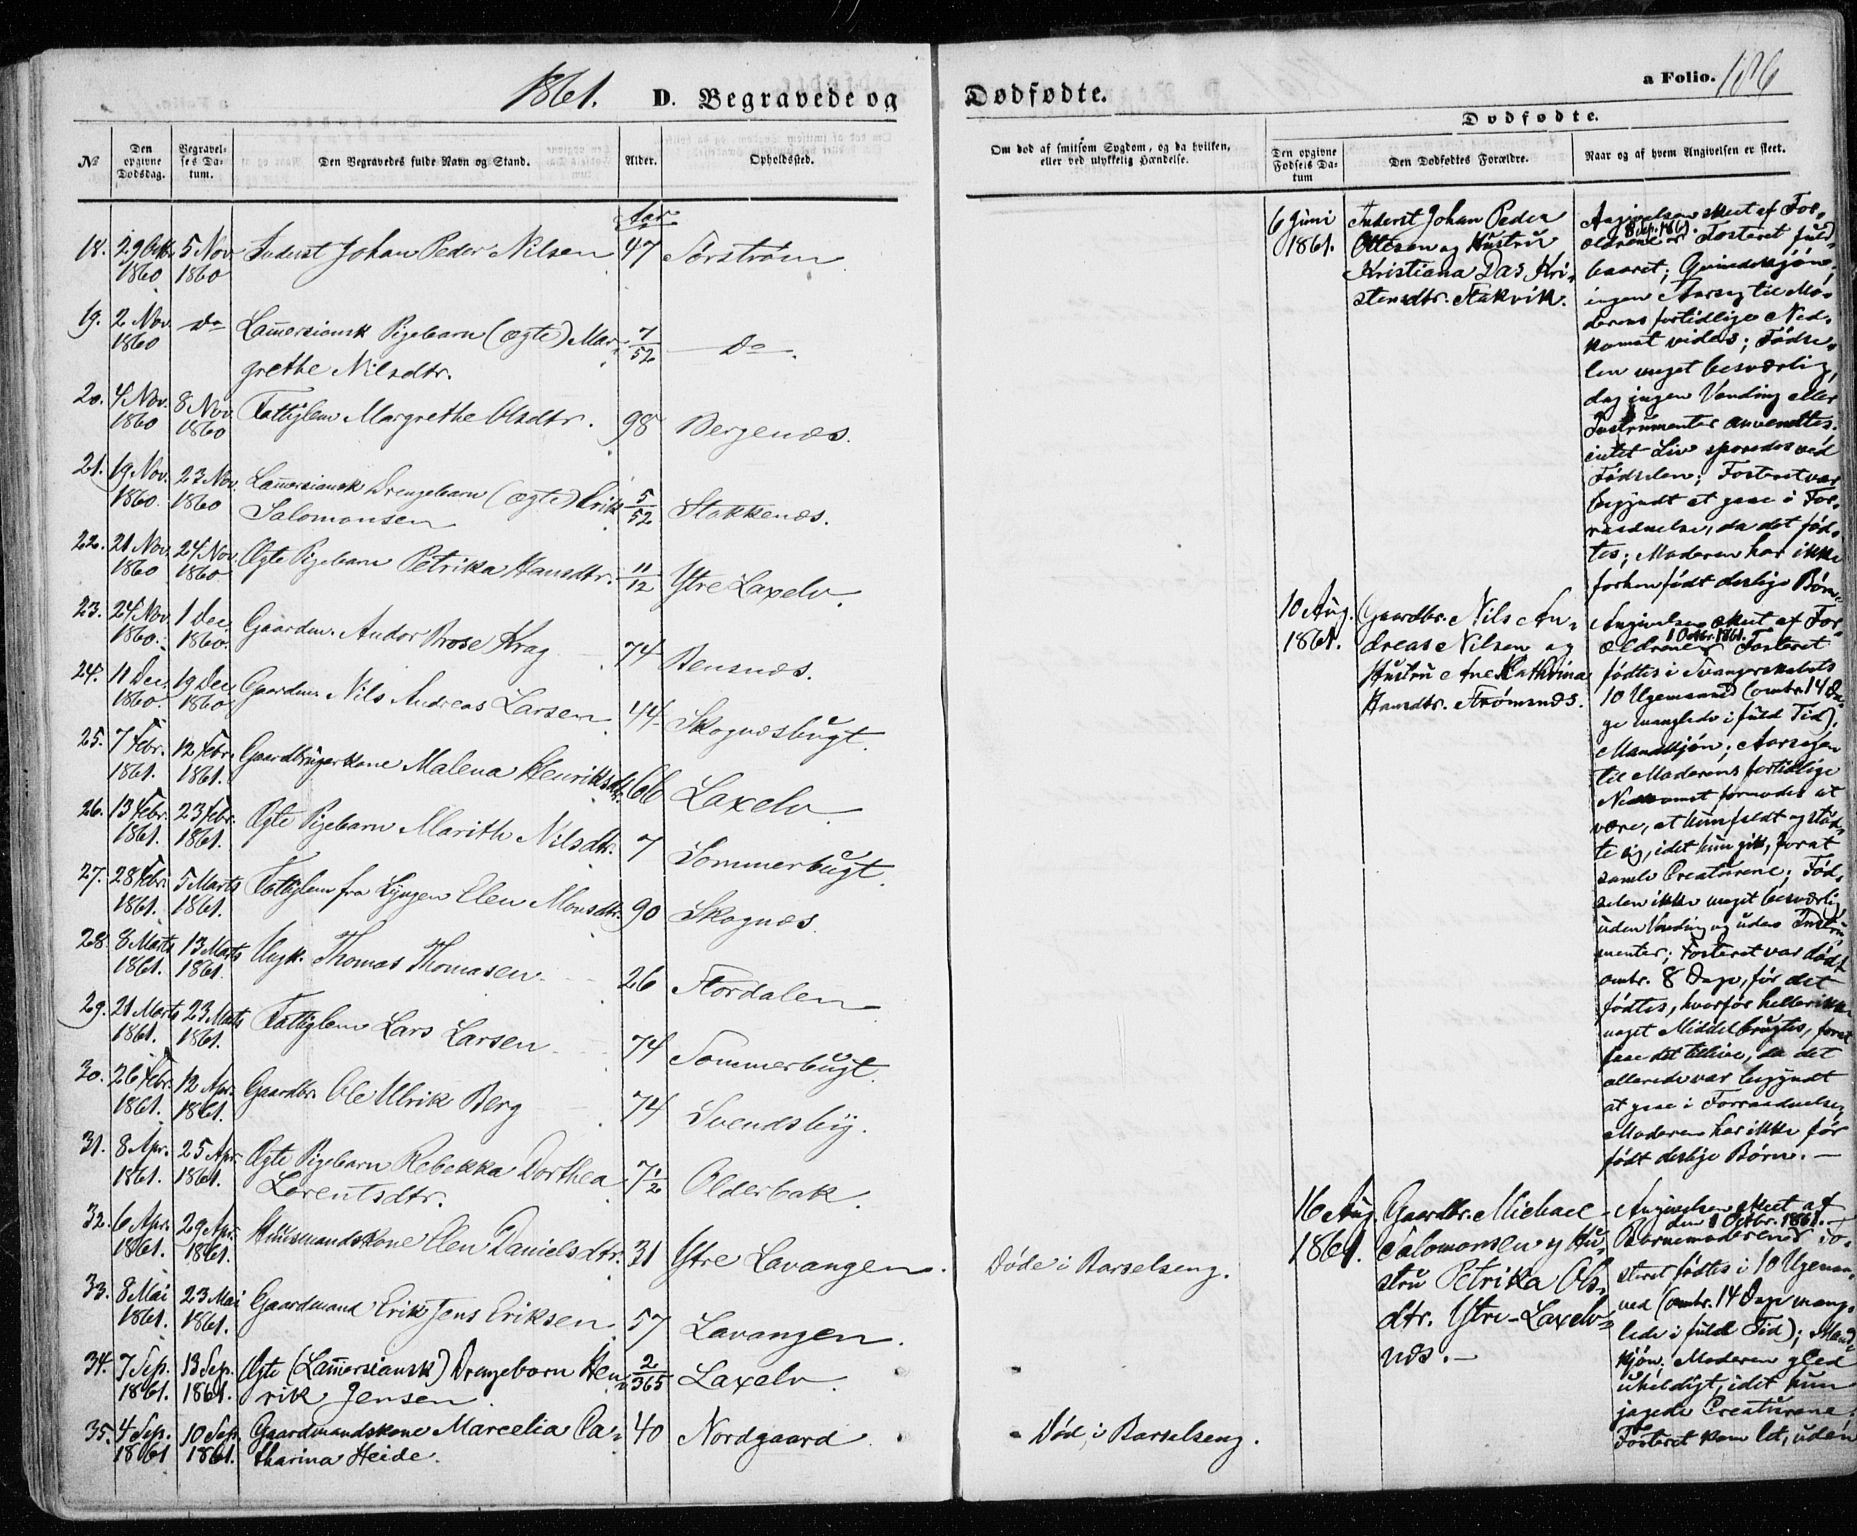 1861.
D. Begravede og
Dødfødte.
a Folio. 186
No
Den opgivne Dødsdag.
Begravelses Datum.
Den Begravedes fulde Navn og Stand.
Alder.
Opholdssted.
Om død af smitsom Sygdom, og da hvilken, eller ved ulykkelig Hændelse.
Dødfødte.
Den opgivne Fødsels Datum
Den Dødfødtes Forældre.
Naar og af hvem Angivelsen er skeet.
Aar
18. 29 Octb. 1860 5 Nov. 1860 Inderst Johan Peder Nilsen 47 Sørstrøm
19. 2 Nov. 1860 Do Lammersiansk Pigebarn (ægte) Mar-
grethe Nilsdtr. 7/52 Do.
20. 4 Nov. 1860 8 Nov. 1860 Fattiglem Margrethe Olsdtr. 98 Bergenæs.
21. 19 Nov. 1860. 23 Nov. 1860 Lammersiansk Drengebarn (ægte) Erik
Salomonsen 5/52 Stakkenæs.
22. 21 Nov. 1860 24 Nov. 1860 Ægte Pigebarn Petrika Hansdtr. 11/12 Ytre Laxelv.
23. 24 Nov. 1860. 1 Dec. 1860. Gaardm. Andor Brose Krag 74 Bensnæs.
24. 11 Dec. 1860. 19 Dec. 1860 Gaardm. Nils Andreas Larsen 44 Skognæsbugt.
25. 7 Febr. 1861. 12 Febr. 1861. Gaardbrugerkone Malena Henriksdtr. 66 Laxelv.
26. 13 Febr. 1861. 23 Febr. 1861. Ægte Pigebarn Marith Nilsdtr. 7 Sommerbugt.
27. 28 Febr. 1861. 5 Marts 1861. Fattiglem fra Lyngen Elen Monsdtr. 90 Skognæs.
28. 8 Marts 1861. 13 Marts 1861. Ungk. Thomas Thomasen 26 Stordalen
29. 21 Marts 1861. 23 Marts 1861. Fattiglem Lars Larsen 74 Sommerbugt.
30. 26 Febr. 1861. 12 Apr. 1861. Gaardbr. Ole Ulrik Berg 74 Svendsby.
31. 8 Apr. 1861. 25 Apr. 1861. Ægte Pigebarn Rebekka Dorthea
Lorentsdtr. 7 1/2 Olderbak.
32. 6 Apr. 1861. 29 Apr. 1861. Huusmandskone Elen Danielsdtr. 31 Ytre Lavangen. Døde i Barselseng.
33. 8 Mai 1861. 23 Mai 1861. Gaardmand Erik Jens Eriksen 57 Lavangen.
34. 7 Sep. 1861. 13 Sep. 1861. Ægte (Lammersiansk) Drengebarn Hen-
rik Jensen. 2/365 Laxelv.
35. 4 Sep. 1861 10 Sep. 1861. Gaardmandskone Marcelia Ca-
tharina Heide. 40 Nordgaard Død i Barselseng.
6 Juni 1861.
Inderst Johan Peder
Ottesen og Hustru
Kristiana Das Kri-
stensdtr. Stakvik.
Angivelsen skeet af For-
8 Sep. 1861.
ældrene; Fosteret fuld-
baaret; Qvindekjøn;
ingen Aarsag til Mo-
derens fortidlige Ned-
komst vides; Fødse-
len meget besværlig,
dog ingen Vending eller
Instrumenter anvendtes.
intet Liv sporedes ved
Fødselen; Fosteret var
begyndt at gaae i For-
raadnelse, da det fød-
tes; Moderen har ikke
forhen født deslige Børn.
10 Aug. 1861.
Gaardbr. Nils An-
dreas Nilsen og
Hustru Ane Kathrina
Hansdtr. Strømsnæs.
Angivelsen skeet af For-
1 Octbr. 1861.
ældrene; Fosteret
fødtes i Svangerskabets
10 Ugemaaned (omtr. 14 Da-
ge manglede i fuld Tid).
Mandkjøn; Aarsagen
til Moderens fortidlige
Nedkomst formodes at
være, at hun faldt og stød-
te sig, idet hun gik, forat
samle Creaturene; Fød-
selen ikke meget besværlig,
uden Vending og uden Instru-
menter; Fosteret var dødt
omtr. 8 Dage, før det
fødtes, hvorfor heller ikke
noget Middel brugtes, forat
faae det tillive, da det
allerede var begyndt
at gaae i Forraadnelse,
Moderen har ikke før
født deslige Børn. —
16 Aug. 1861.
Gaardbr. Michael
Salomonsen og Hu-
stru Petrika Ols-
dtr. Ytre-Laxelv-
næs. —
Angivelsen skeet af
den 1 Octbr. 1861.
Barnemoderen; Fo-
steret fødtes i 10 Ugemaa-
ned (omtr. 14 Dage mang-
lede i fuld Tid); Mand-
kjøn. Moderen gled
uheldigt, idet hun
jagede Creaturene;
Fosteret kom let, uden